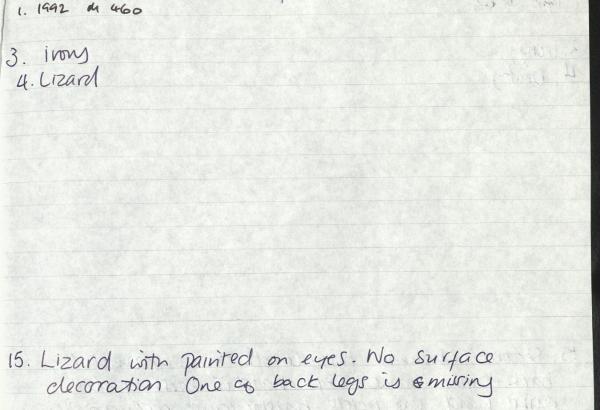 1. 1992 dh 460
3. irons
4. Lizard
15. Lizard with painted on eyes. No surface
decoration One of back legs is missing